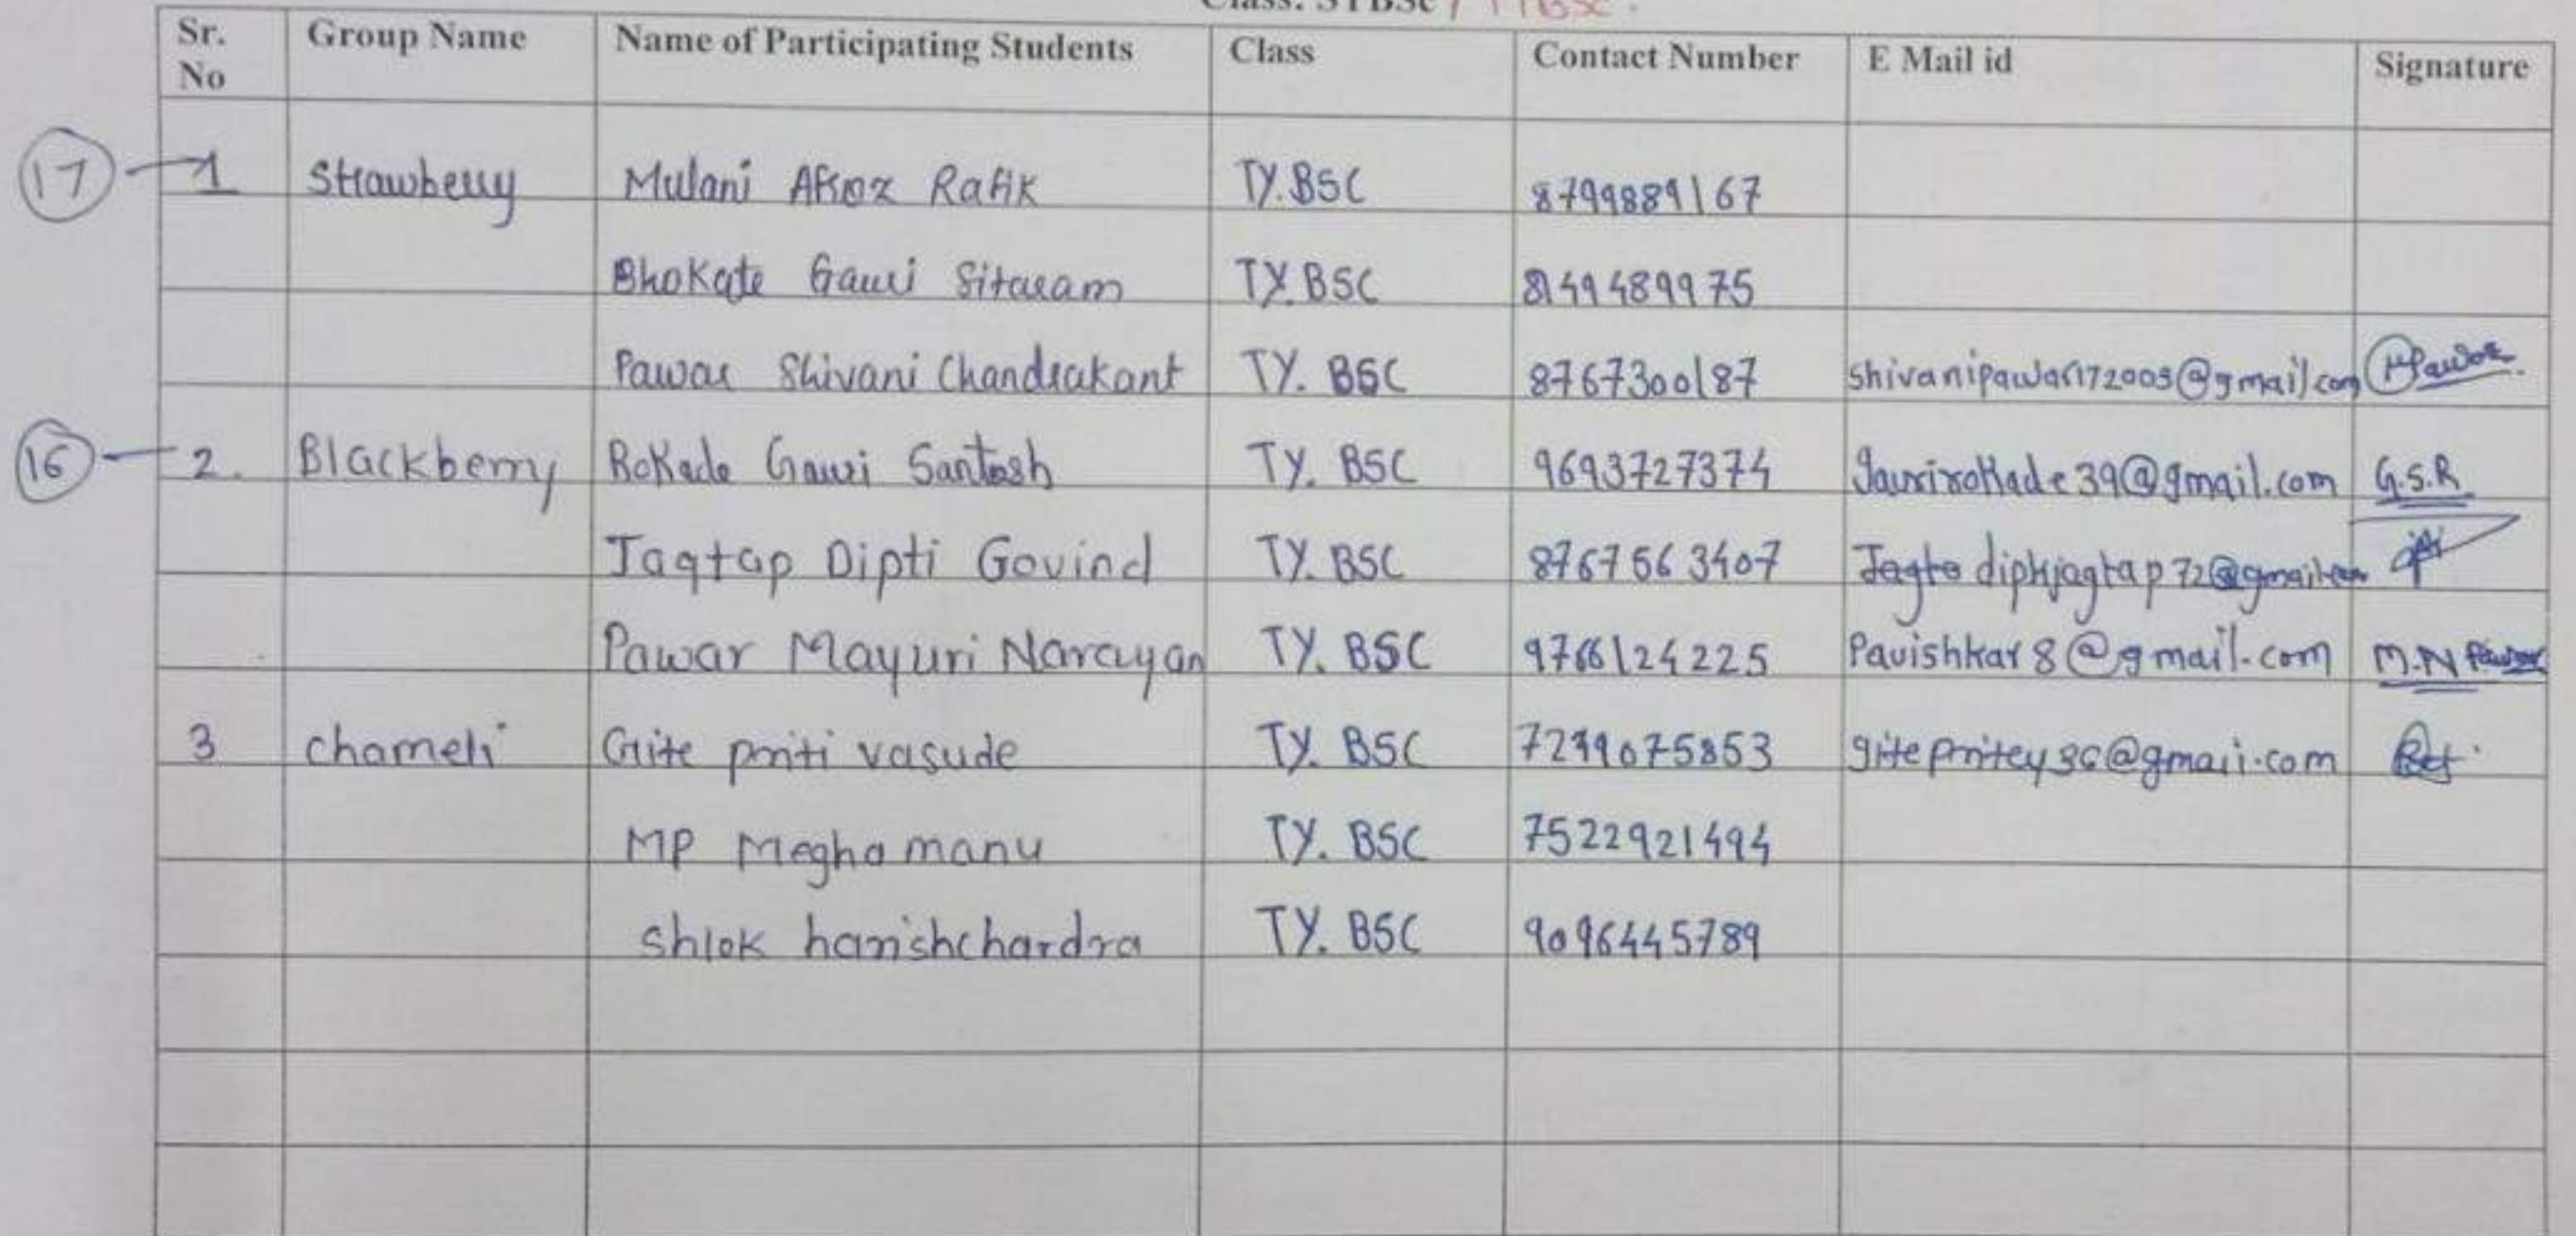 Class: SYBSc / TYBSc.
Sr. No Group Name Name of Participating Students Class Contact Number E Mail id Signature
17 1 Strawberry Mulani Afroz Rafik TY.BSC 8799889167
Bhokate Gauri Sitaram TY.BSC 8149489975
Pawar Shivani Chandrakant TY. BSC 8767300187 shivanipawar172003@gmail.com Pawar
16 2. Blackberry Rokade Gauri Santosh TY. BSC 9693727374 gaurirokade39@gmail.com G.S.R
Jagtap Dipti Govind TY. BSC 8767563407 diptijagtap72@gmail.com
Pawar Mayuri Narayan TY. BSC 9766124225 Pavishkar8@gmail.com M.N Pawar
3 chameli Gite priti vasude TY. BSC 7299075853 gitepritey36@gmail.com
MP Megha manu TY. BSC 7522921494
Shlok harishchardra TY. BSC 9096445789